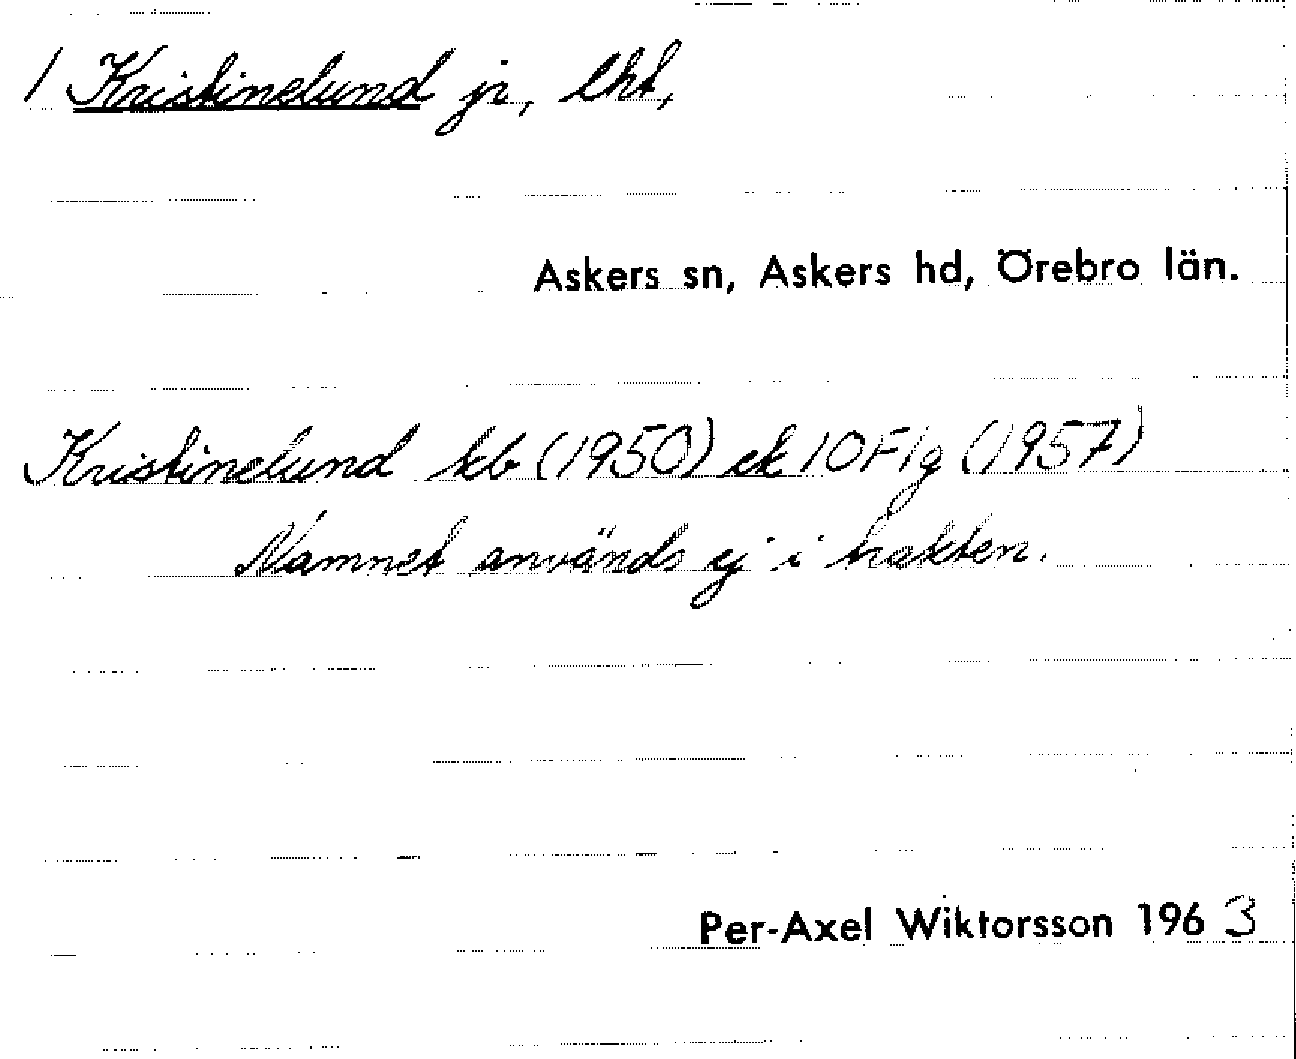 / Kristinelund jr, lht,
Askers sn, Askers hd, Örebro län.
Kristinelund kb (1950) ek 10F1g (1957)
Namnet används ej i trakten.
Per-Axel Wiktorsson 1963